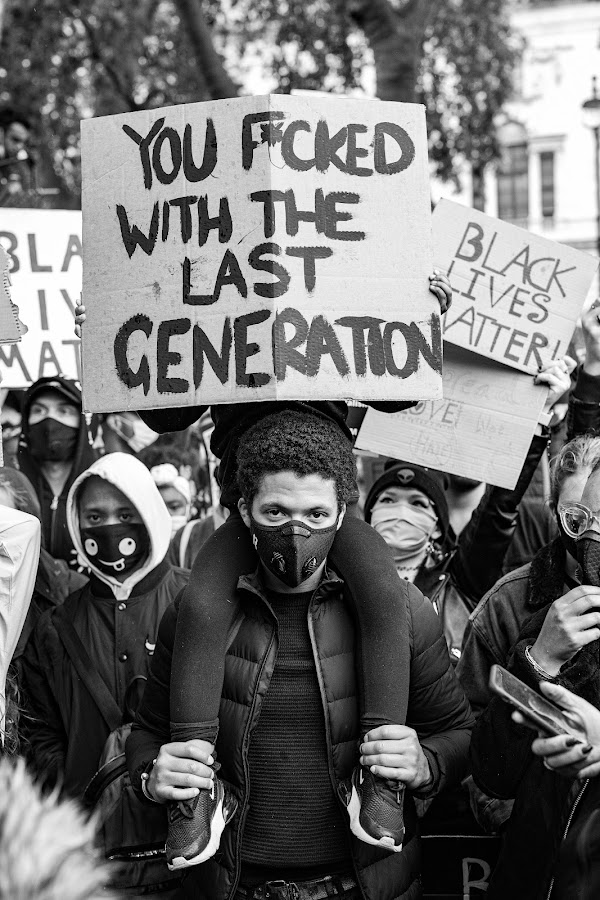 YOU F*CKED
WITH THE
LAST
GENERATION
BLA
LIV
MAT
BLACK
LIVES
MATTER!